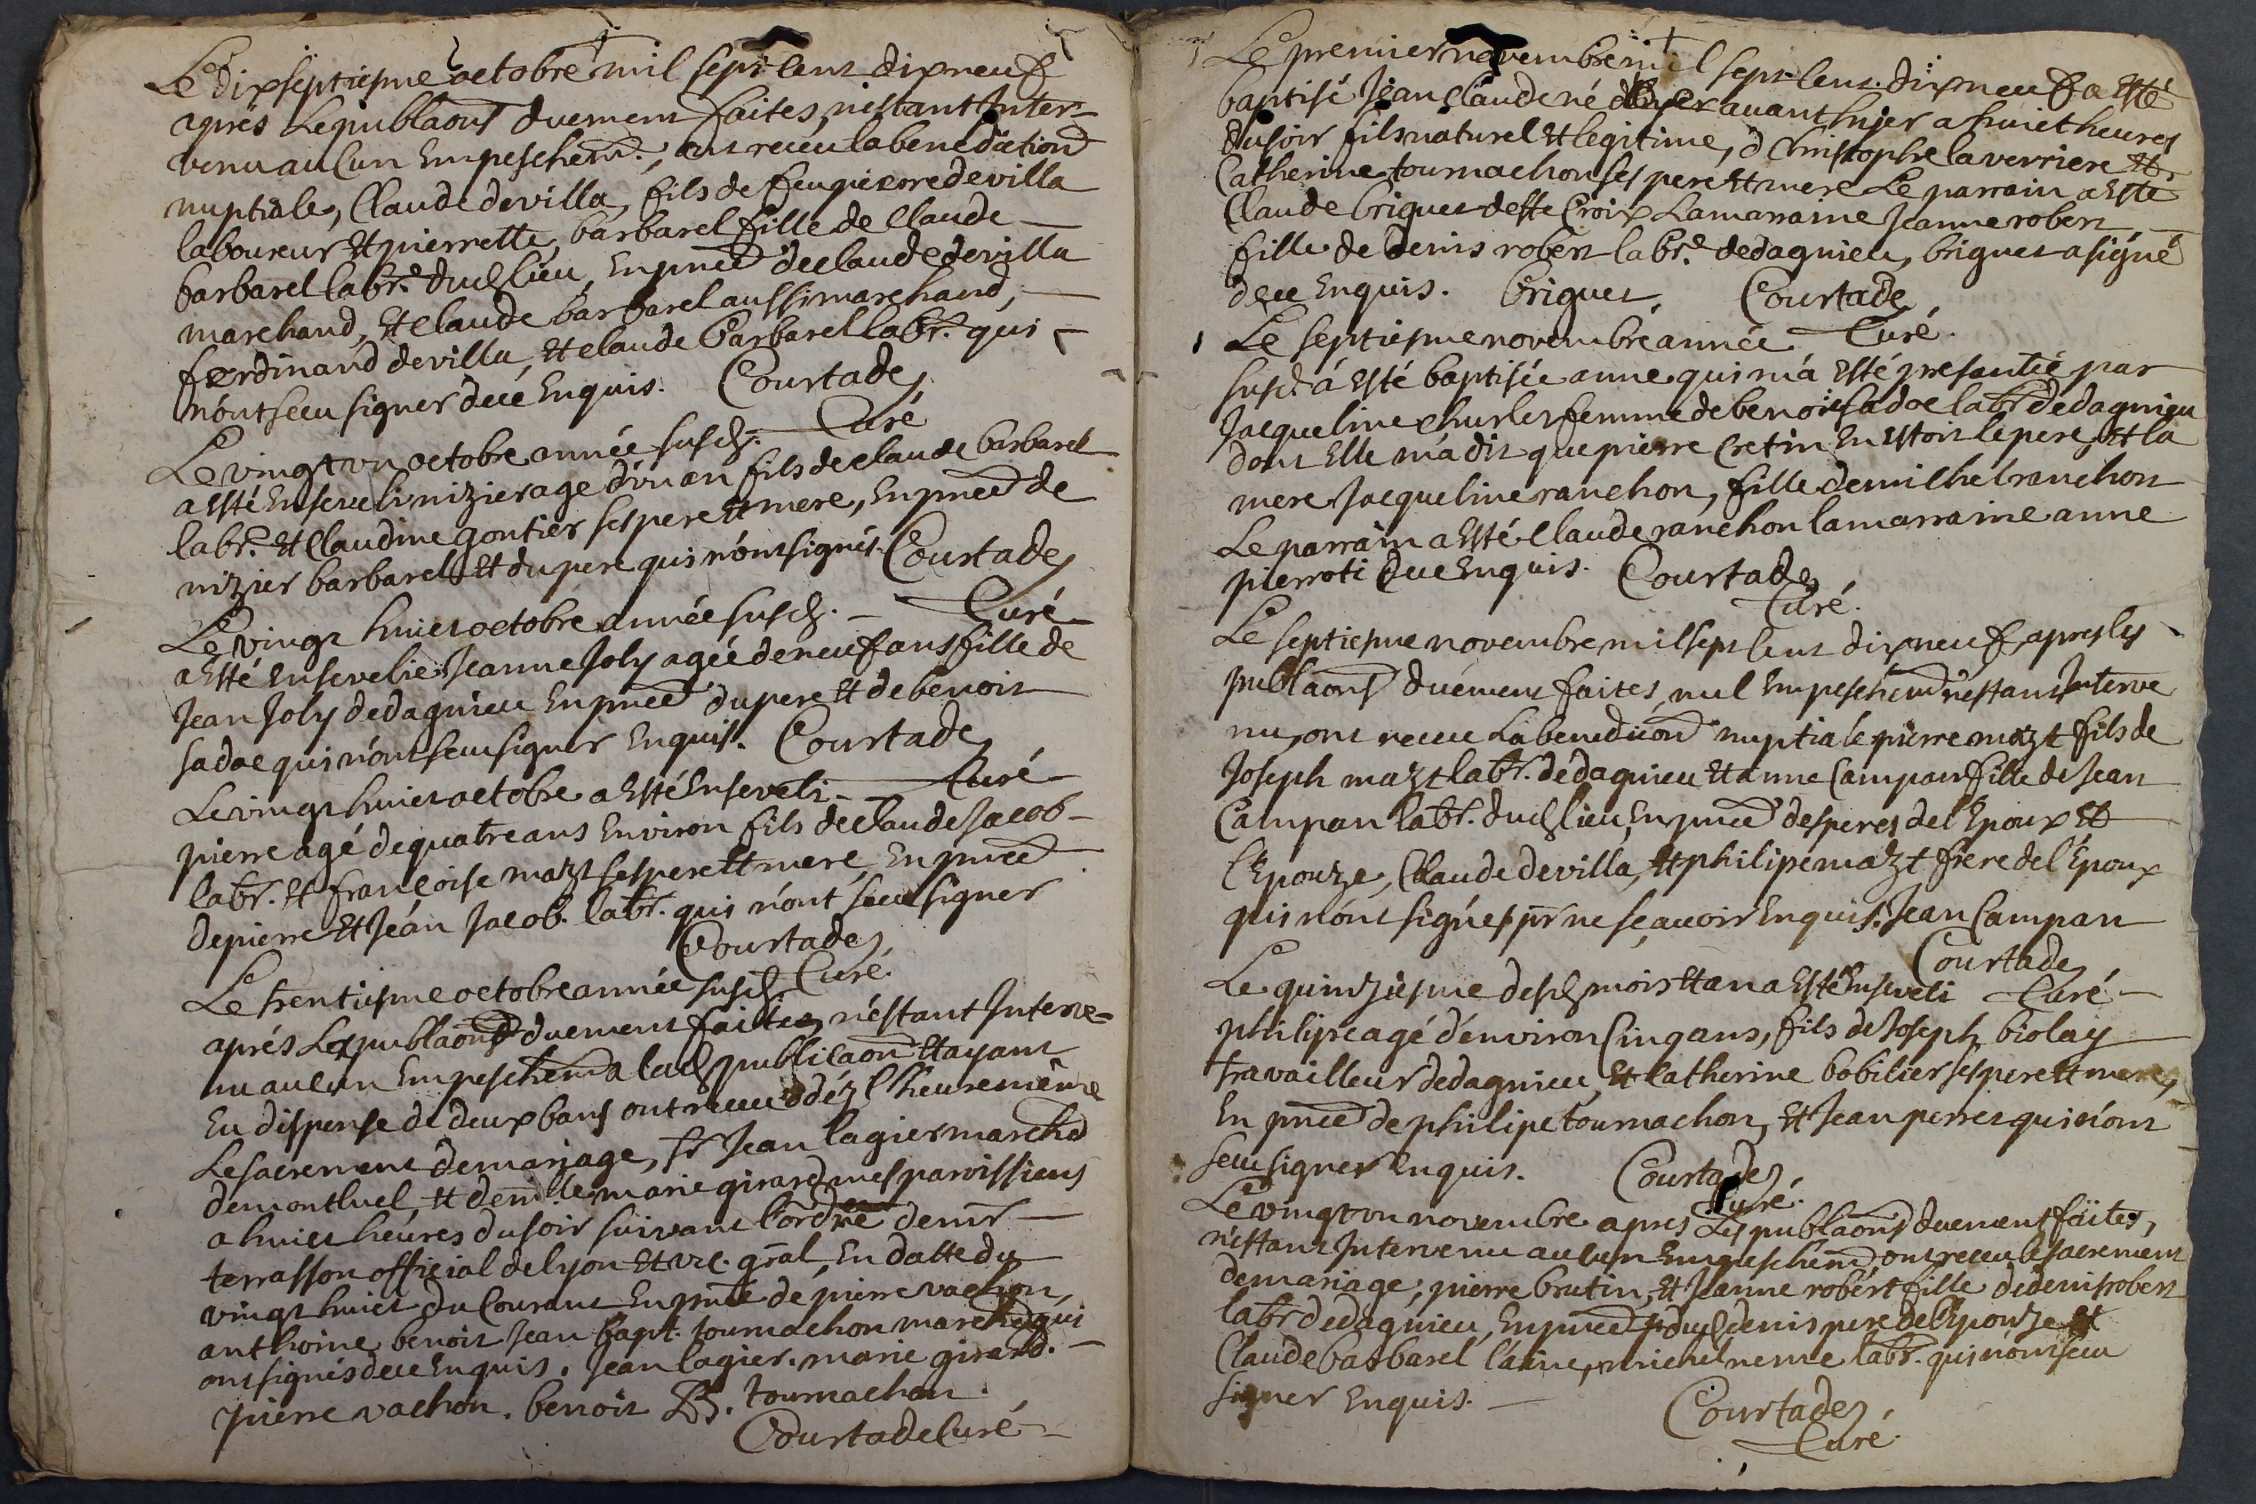 Le dixseptiesme octobre mil sept cent dixneuf
aprés Les publaons duement faites, n'estant Inter-
venu aucun Empeschem.t, ont receu la benediction
nuptiale, Claude devilla, fils de feu pierre devilla
laboureur Et pierrette barbarel fille de Claude
barbarel labr. dud lieu, En pnce de claude devilla
marchand, Et claude barbarel aussi marchand,
ferdinand devilla, Et claude barbarel labr. qui
n'ont sceu signer de ce Enquis. Courtade
Curé
Le vingt vn octobre année susd.
a Esté Enseveli nizier age d'un an fils de claude barbarel
labr. Et Claudine gontier ses pere Et mere, En pnce de
nizier barbarel Et du pere qui n'ont signés. Courtade
Curé
Le vingt huict octobre année susd.
a Esté Ensevelie Jeanne Joly agée de neuf ans fille de
Jean Joly de dagnieu En pnce du pere Et de benoit
sadoe qui n'ont sceu signer Enquis. Courtade
Curé
Le vingt huict octobre a Esté Enseveli
pierre agé de quatre ans Environ fils de claude Jacob
labr. Et françoise mazt ses pere Et mere, En pnce
de pierre Et Jean Jacob. labr. qui n'ont sceu signer
Courtade
Curé.
Le trentiesme octobre année susd
aprés Les publaons duement faites, n'estant Interve-
nu aucun Empeschem a lad publicaon Et ayant
Eu dispense de deux bans ont receu déz l'heure même
Le sacrement de mariage, sr Jean lagier marchd
de montluel, Et demlle marie girard mes paroissiens
a huict heures du soir suivant l'ordre de mr
terrasson official de lyon Et vic. gral, En datte du
vingt huict du Courant En pnce de pierre vachon,
anthoine benoit Jean bapt. tournachon marchd qui
ont signés de ce Enquis. Jean lagier. marie girard.
pierre vachon. benoit B. tournachon.
Courtade Curé
Le premier novembre mil sept cent dixneuf a Esté
baptisé Jean claude né avant hyer a huict heures
du soir fils naturel Et legitime, d christophe laverriere Et
Catherine tournachon ses pere Et mere Le parrain a Esté
Claude briguet de ste Croix La marraine Jeanne robert
fille de denis robert labr. de dagnieu, briguet a signé
de ce Enquis. briguet. Courtade
Curé.
Le septiesme novembre année
susd. a Esté baptisée anne qui m'a Esté presentée par
Jacqueline charles femme de benoist sadoe labr de dagnieu
dont Elle m'a dit que pierre cretin En Estoit le pere, Et la
mere Jacqueline ranchon, fille de michel ranchon
Le parrain a Esté claude ranchon la marraine anne
pierroti de ce Enquis. Courtade
Curé.
Le septiesme novembre mil sept cent dixneuf, apres les
publaons duement faites, nul Empeschem n'estant Interve
nu, ont receu La benediction nuptiale pierre mazt fils de
Joseph mazt labr. de dagnieu Et anne Campan fille de Jean
Campan labr. dud lieu, En pnce des peres de l'Epoux Et
l'Epouze, Claude devilla, Et philipe mazt frere de l'Epoux
qui n'ont signés pr ne sçavoir Enquis. Jean Campan
Courtade
Curé
Le quinziesme desd mois Et an a Esté Enseveli
philipe agé d'environ Cinq ans, fils de Joseph biolay
travailleur de dagnieu, Et Catherine bobilier ses pere Et mere,
En pnce de philipe tournachon, Et Jean perret qui n'ont
sceu signer Enquis. Courtade
Curé.
Le vingt vn novembre apres Les publaons duement faites,
n'estant Intervenu aucun Empeschem, ont receu le sacrement
de mariage, pierre brutin, Et Jeanne robert fille de denis robert
labr de dagnieu, En pnce dud denis pere de l'Epouze Et
Claude barbarel l'aine, michel neme labr. qui n'ont sceu
signer Enquis.
Courtade
Curé.